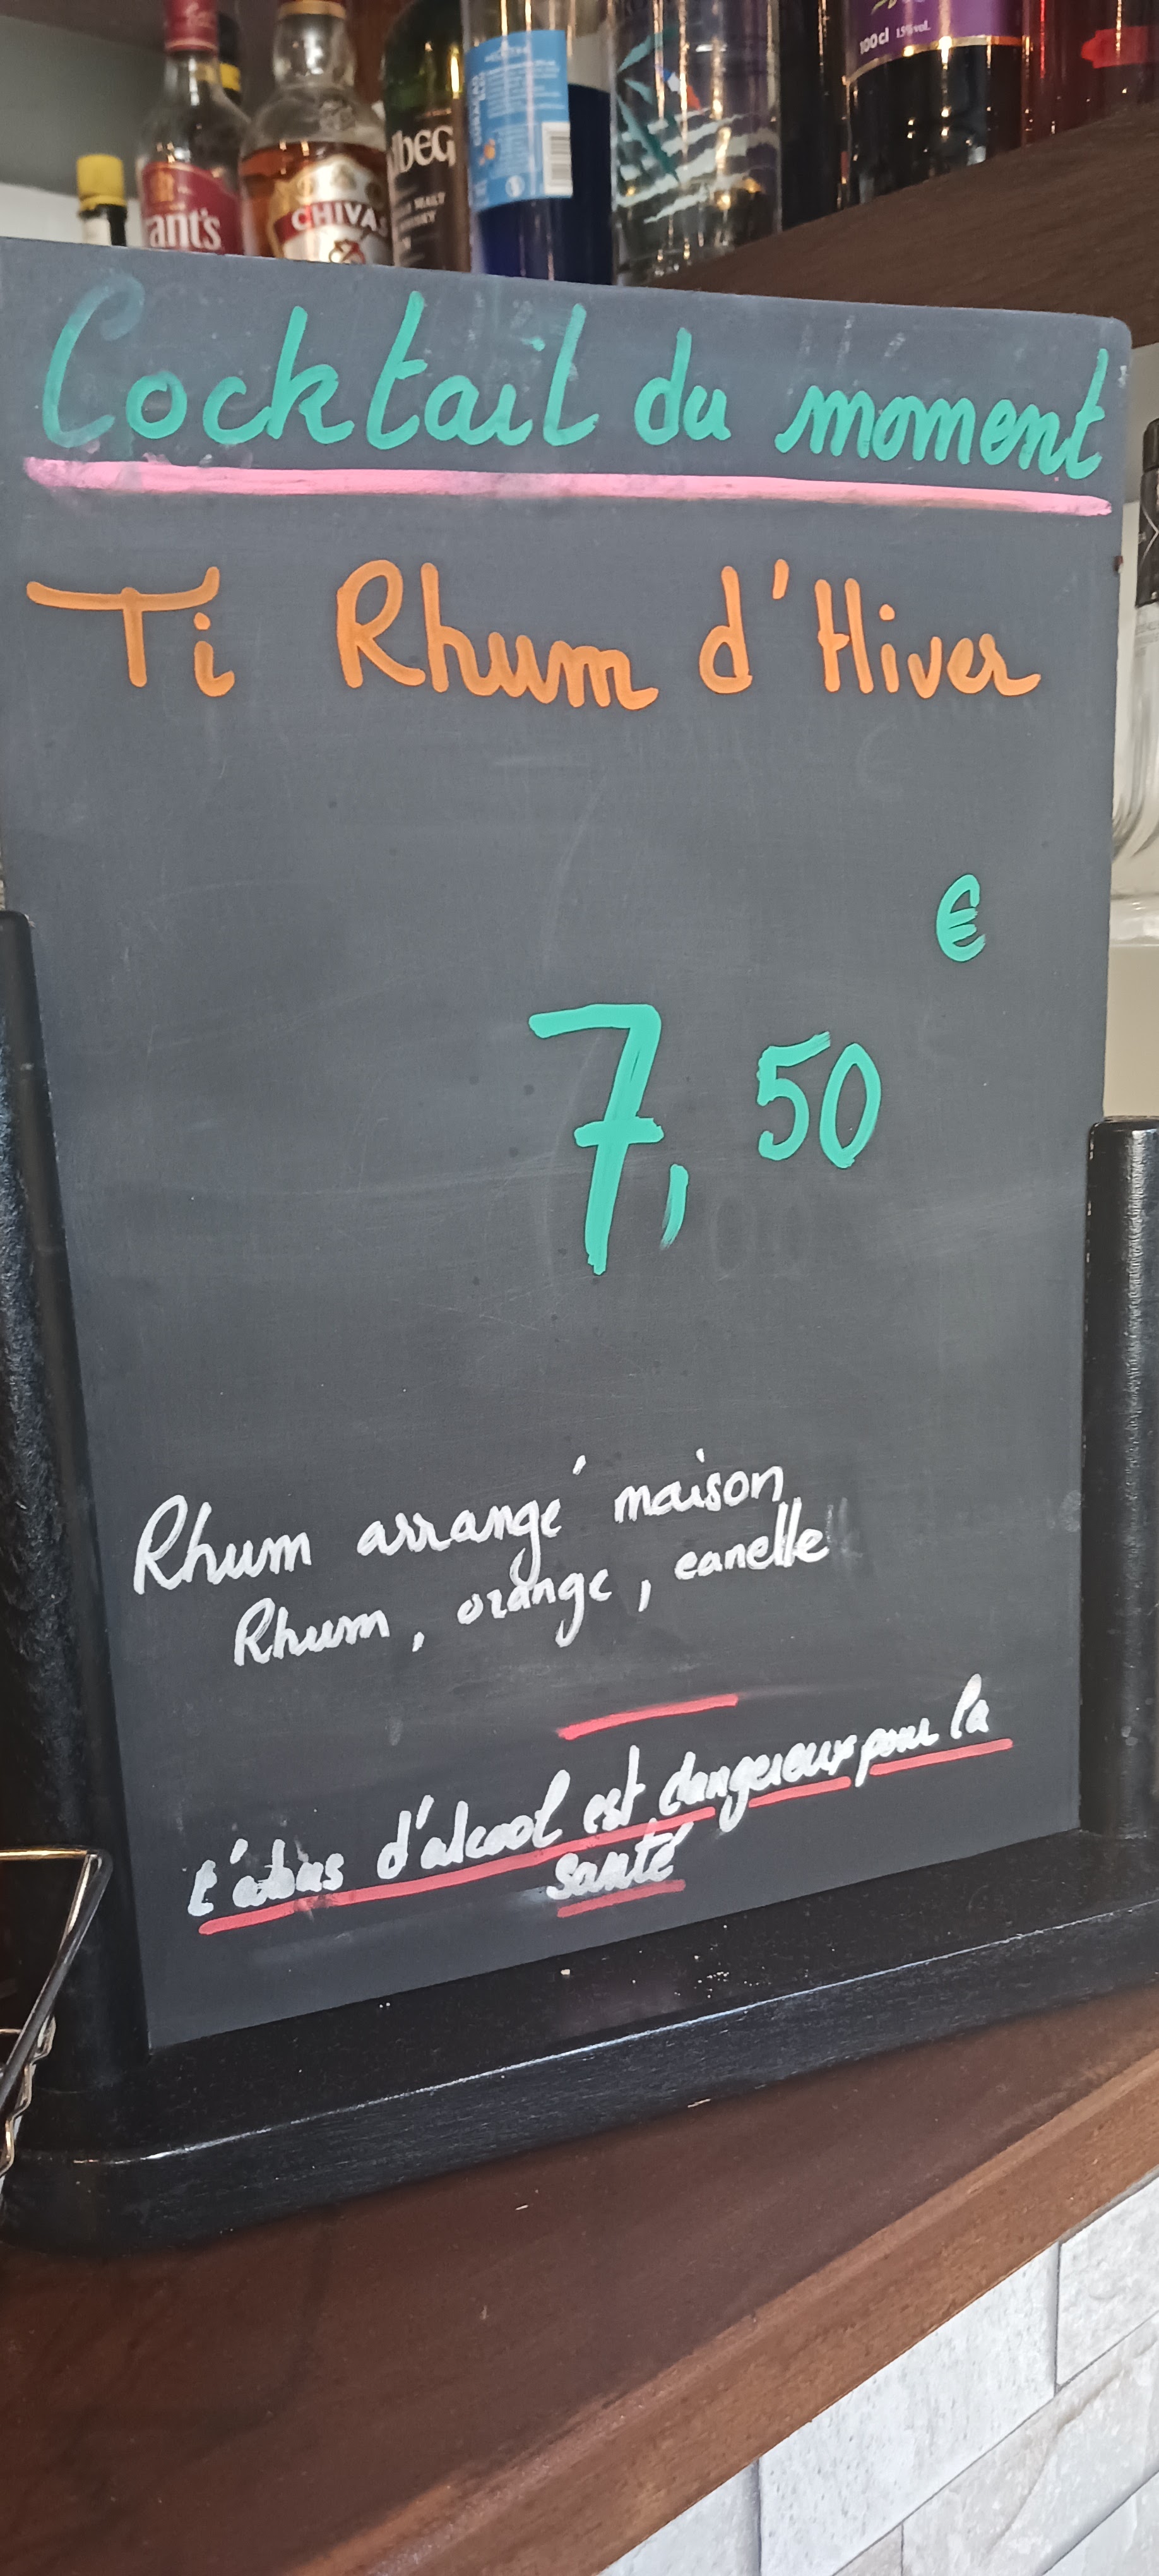 100cl 15%vol.
ant's
CHIVAS
dbeg
Cocktail du moment
Ti Rhum d'Hiver
€
7,50
Rhum arrangé maison
Rhum, orange, canelle
L'abus d'alcool est dangereux pour la
santé